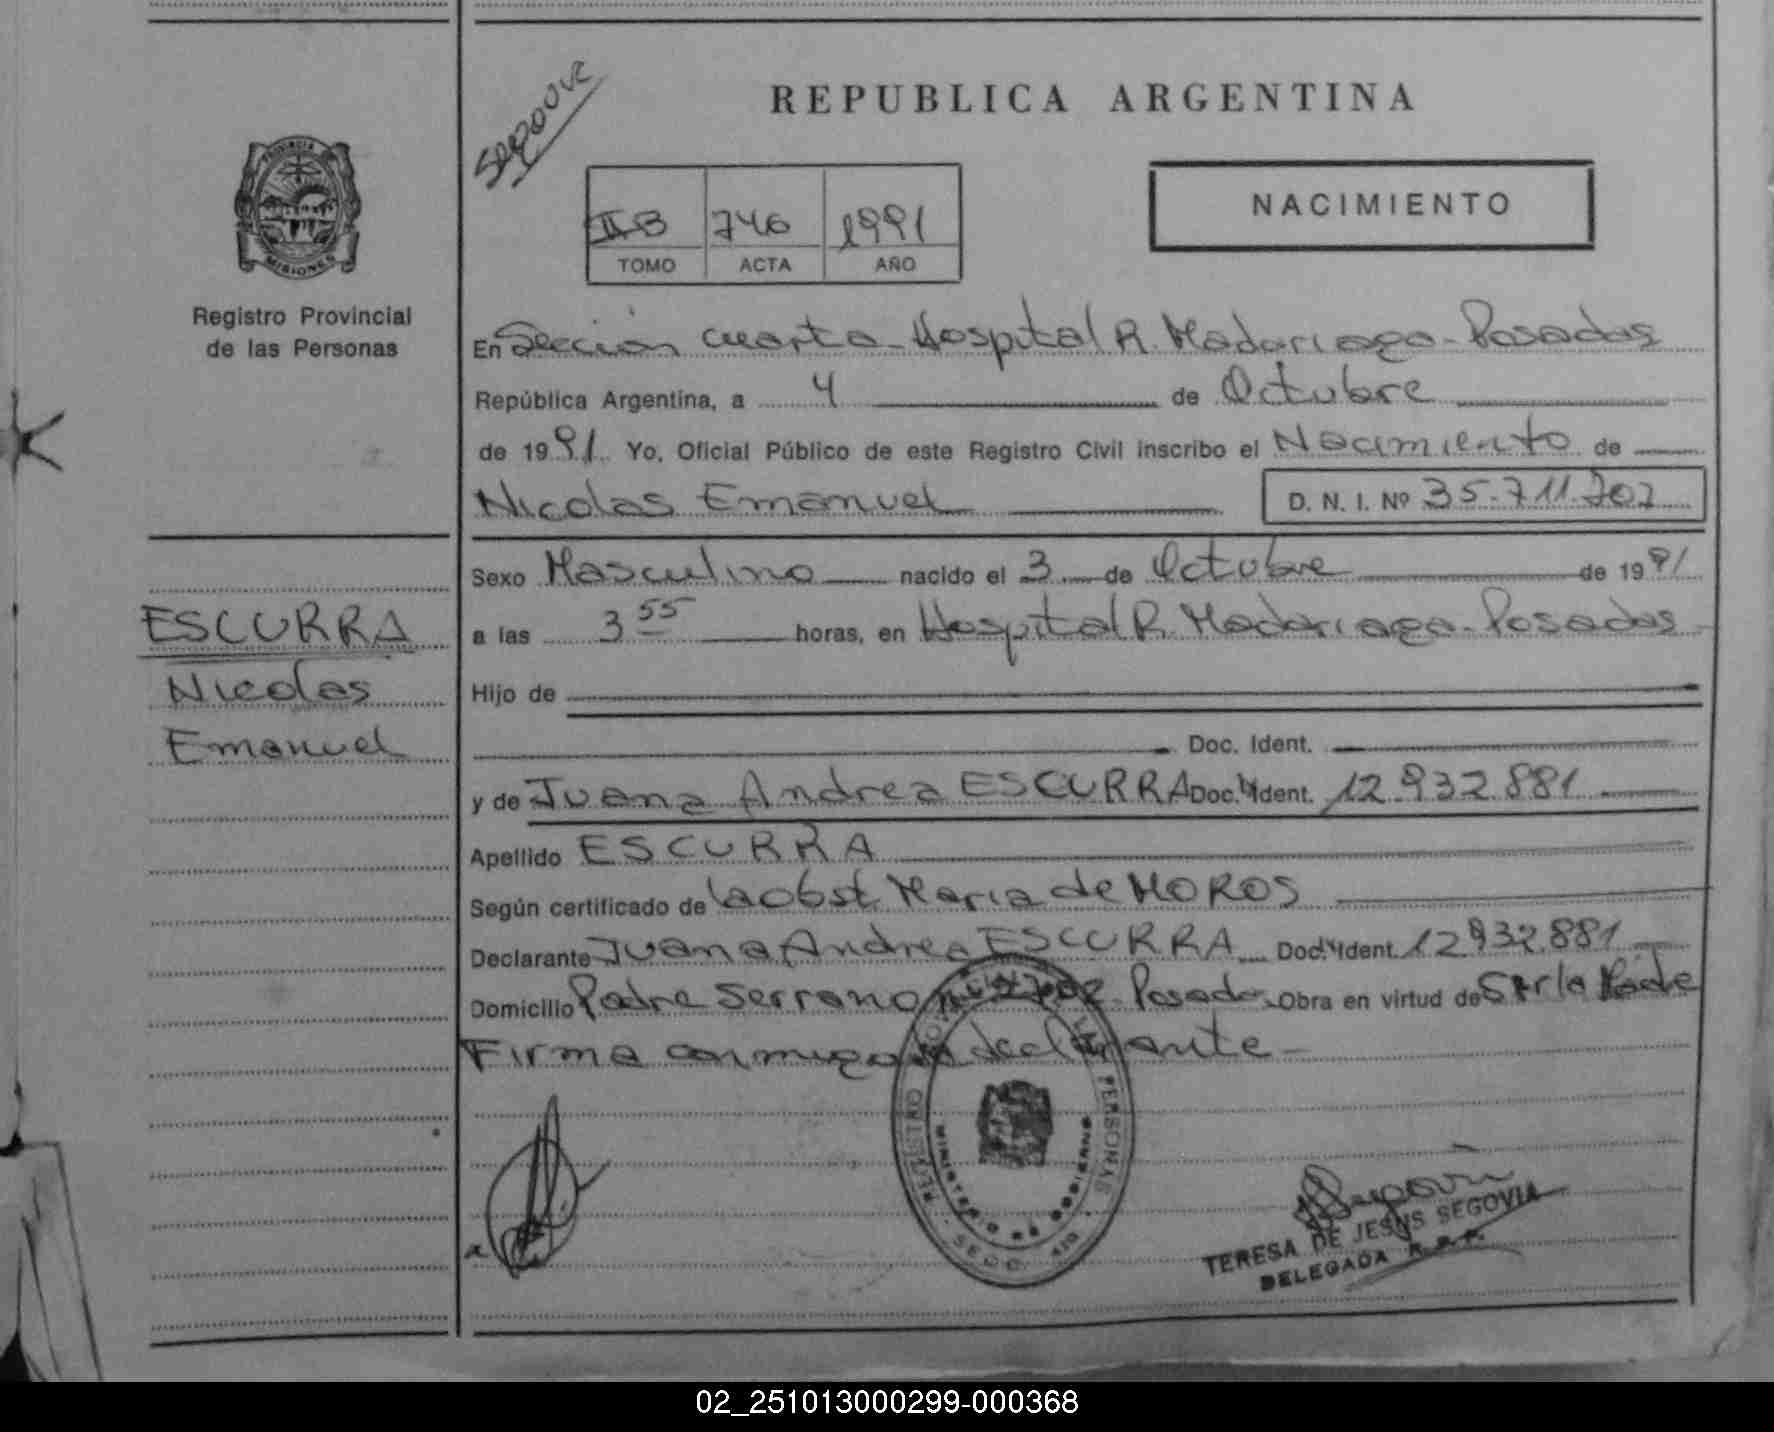 REPUBLICA ARGENTINA
NACIMIENTO
II B 746 1991
TOMO ACTA AÑO
PROVINCIA
MISIONES
Registro Provincial
de las Personas
En Sección cuarta - Hospital R. Madariaga - Posadas
República Argentina, a 4 de Octubre
de 1991 Yo, Oficial Público de este Registro Civil inscribo el Nacimiento de
Nicolas Emanuel D. N. I. Nº 35.711.202
Sexo Masculino nacido el 3 de Octubre de 1991
a las 3 55 horas, en Hospital R. Madariaga - Posadas
ESCURRA
Nicolas
Emanuel
Hijo de
Doc. Ident.
y de Juana Andrea ESCURRA Doc. Ident. 12.932.881
Apellido ESCURRA
Según certificado de la obst. Maria de MOROS
Declarante Juana Andrea ESCURRA Doc. Ident. 12.932.881
Domicilio Padre Serrano Posadas Obra en virtud de
Firma conmigo la declarante -
REGISTRO PERSONAS
MINISTERIO DE GOBIERNO
TERESA DE JESUS SEGOVIA
DELEGADA R. P. P.
02_251013000299-000368